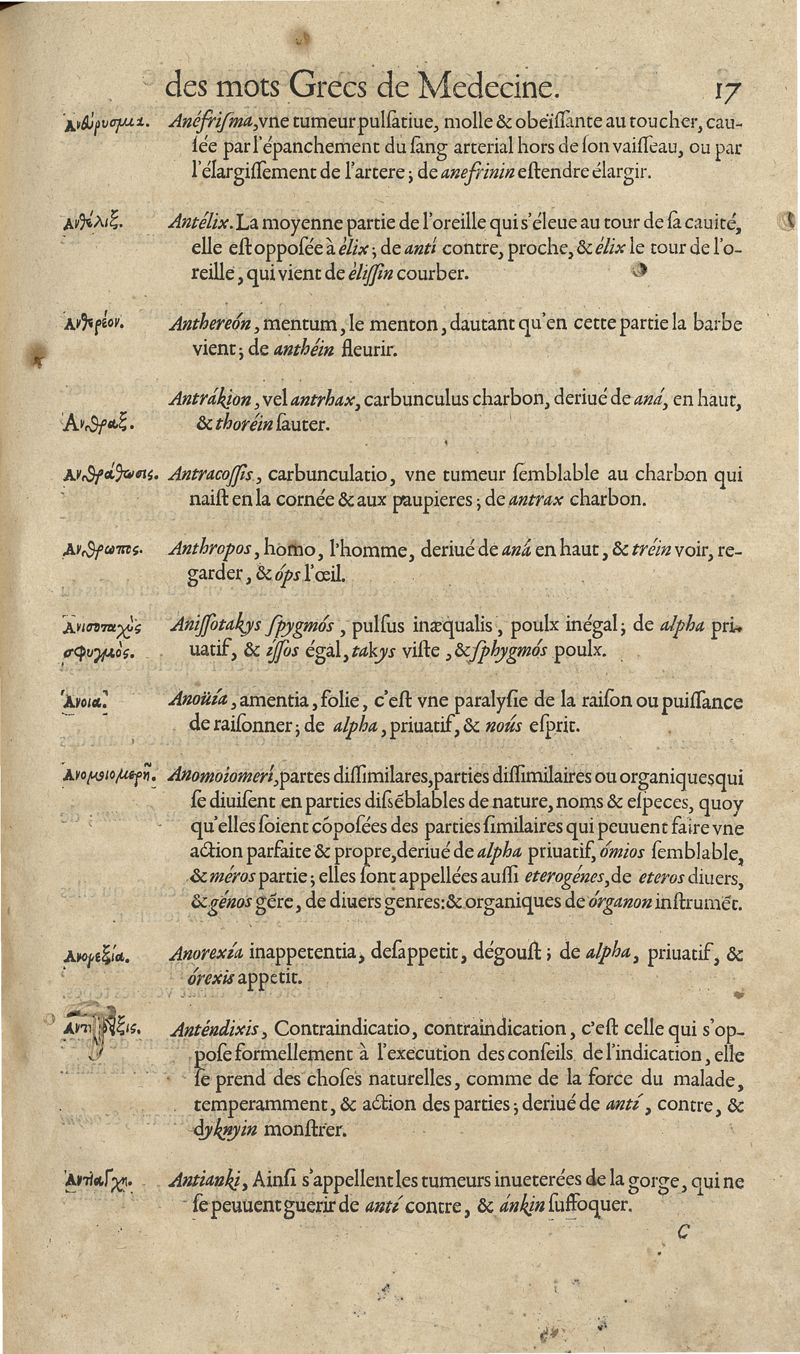 des mots Grecs de Medecine. 17
Anéfriſma, vne tumeur pulſatiue, molle & obeïſſante au toucher, cau-
ſée par l'épanchement du ſang arterial hors de ſon vaiſſeau, ou par
l'élargiſſement de l'artere ; de anefrinin eſtendre élargir.
Ανθέλιξ. Antélix. La moyenne partie de l'oreille qui s'éleue au tour de ſa cauité,
elle eſt oppoſée à élix ; de antí contre, proche, & élix le tour de l'o-
reille, qui vient de éliſſin courber.
Ανθερέον. Anthereón, mentum, le menton, dautant qu'en cette partie la barbe
vient ; de anthéin fleurir.
Antrákion, vel antrhax, carbunculus charbon, deriué de aná, en haut,
Ανθραξ. & thoréin ſauter.
Antracoſſis, carbunculatio, vne tumeur ſemblable au charbon qui
naiſt en la cornée & aux paupieres ; de antrax charbon.
Ανθρωπος. Anthropos, homo, l'homme, deriué de aná en haut, & tréin voir, re-
garder, & óps l'œil.
Ανισοταχὺς Aniſſotakys ſpygmós, pulſus inæqualis, poulx inégal ; de alpha pri-
σφυγμὸς. uatif, & iſſos égal, takys viſte, & ſphygmós poulx.
Ἄνοια. Anoüía, amentia, folie, c'eſt vne paralyſie de la raiſon ou puiſſance
de raiſonner ; de alpha, priuatif, & noús eſprit.
Ανομοιομερῆ. Anomoiomeri, partes diſſimilares, parties diſſimilaires ou organiques qui
ſe diuiſent en parties diſsẽblables de nature, noms & eſpeces, quoy
qu'elles ſoient cõpoſées des parties ſimilaires qui peuuent faire vne
action parfaite & propre, deriué de alpha priuatif, ómios ſemblable,
& méros partie ; elles ſont appellées auſſi eterogénes, de eteros diuers,
& génos gẽre, de diuers genres : & organiques de órganon inſtrumẽt.
Ανορεξία. Anorexía inappetentia, deſappetit, dégouſt ; de alpha, priuatif, &
órexis appetit.
Anténdixis, Contraindicatio, contraindication, c'eſt celle qui s'op-
poſe formellement à l'execution des conſeils de l'indication, elle
ſe prend des choſes naturelles, comme de la force du malade,
temperamment, & action des parties ; deriué de antí, contre, &
dyknyin monſtrer.
Antianki, Ainſi s'appellent les tumeurs inueterées de la gorge, qui ne
ſe peuuent guerir de antí contre, & ánkin ſuffoquer.
C